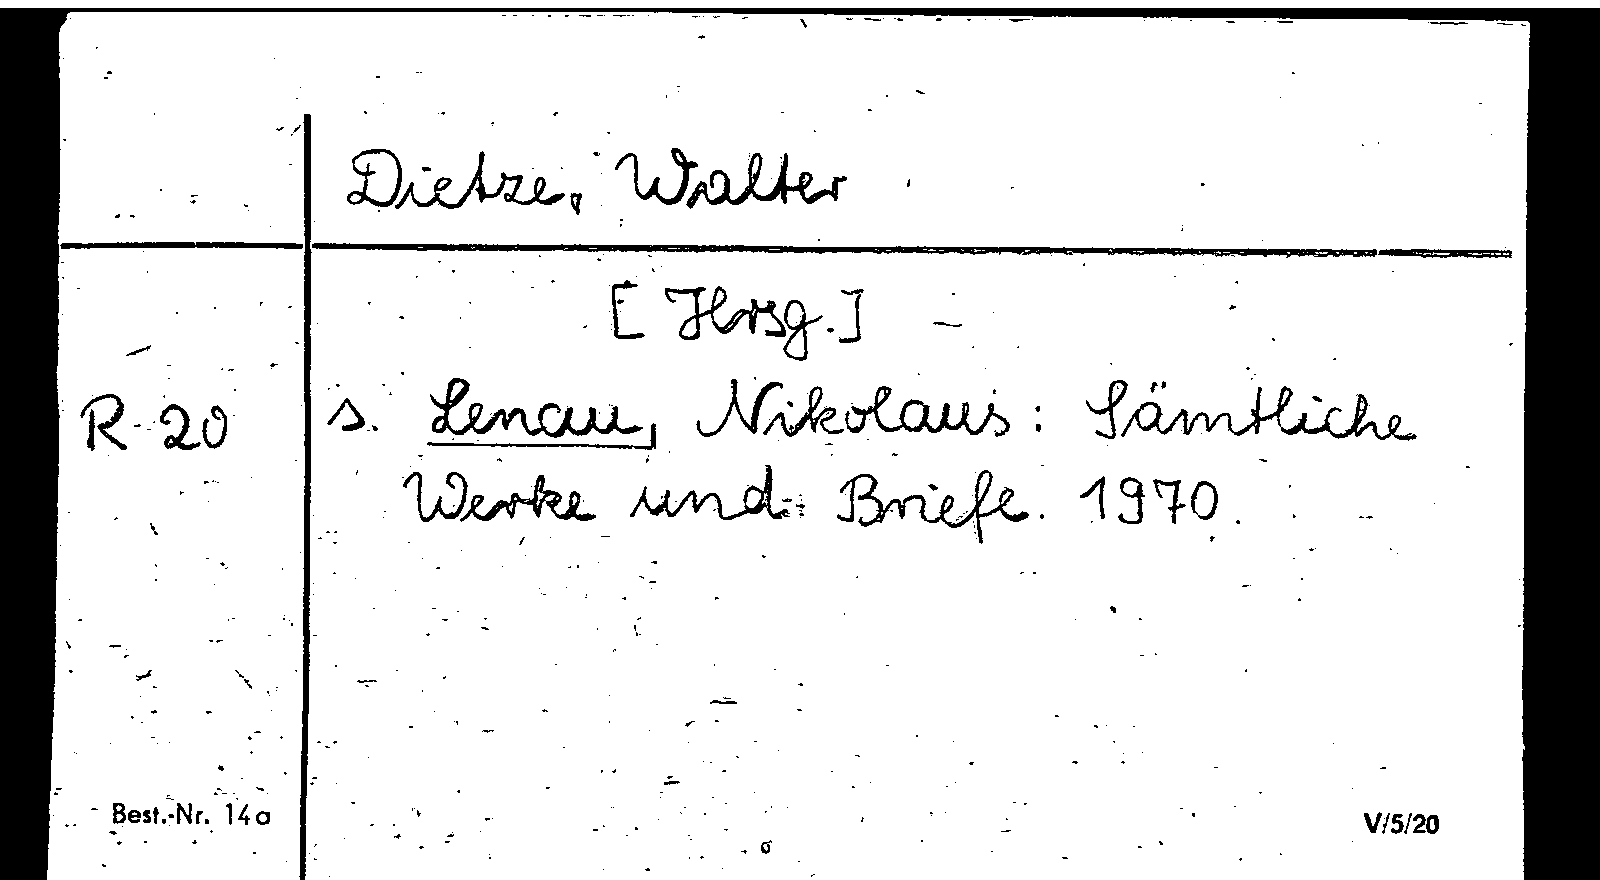 Dietze, Walter
[Hrsg.]
R 20 s. Lenau, Nikolaus: Sämtliche
Werke und Briefe. 1970.
Best.-Nr. 14a
V/5/20